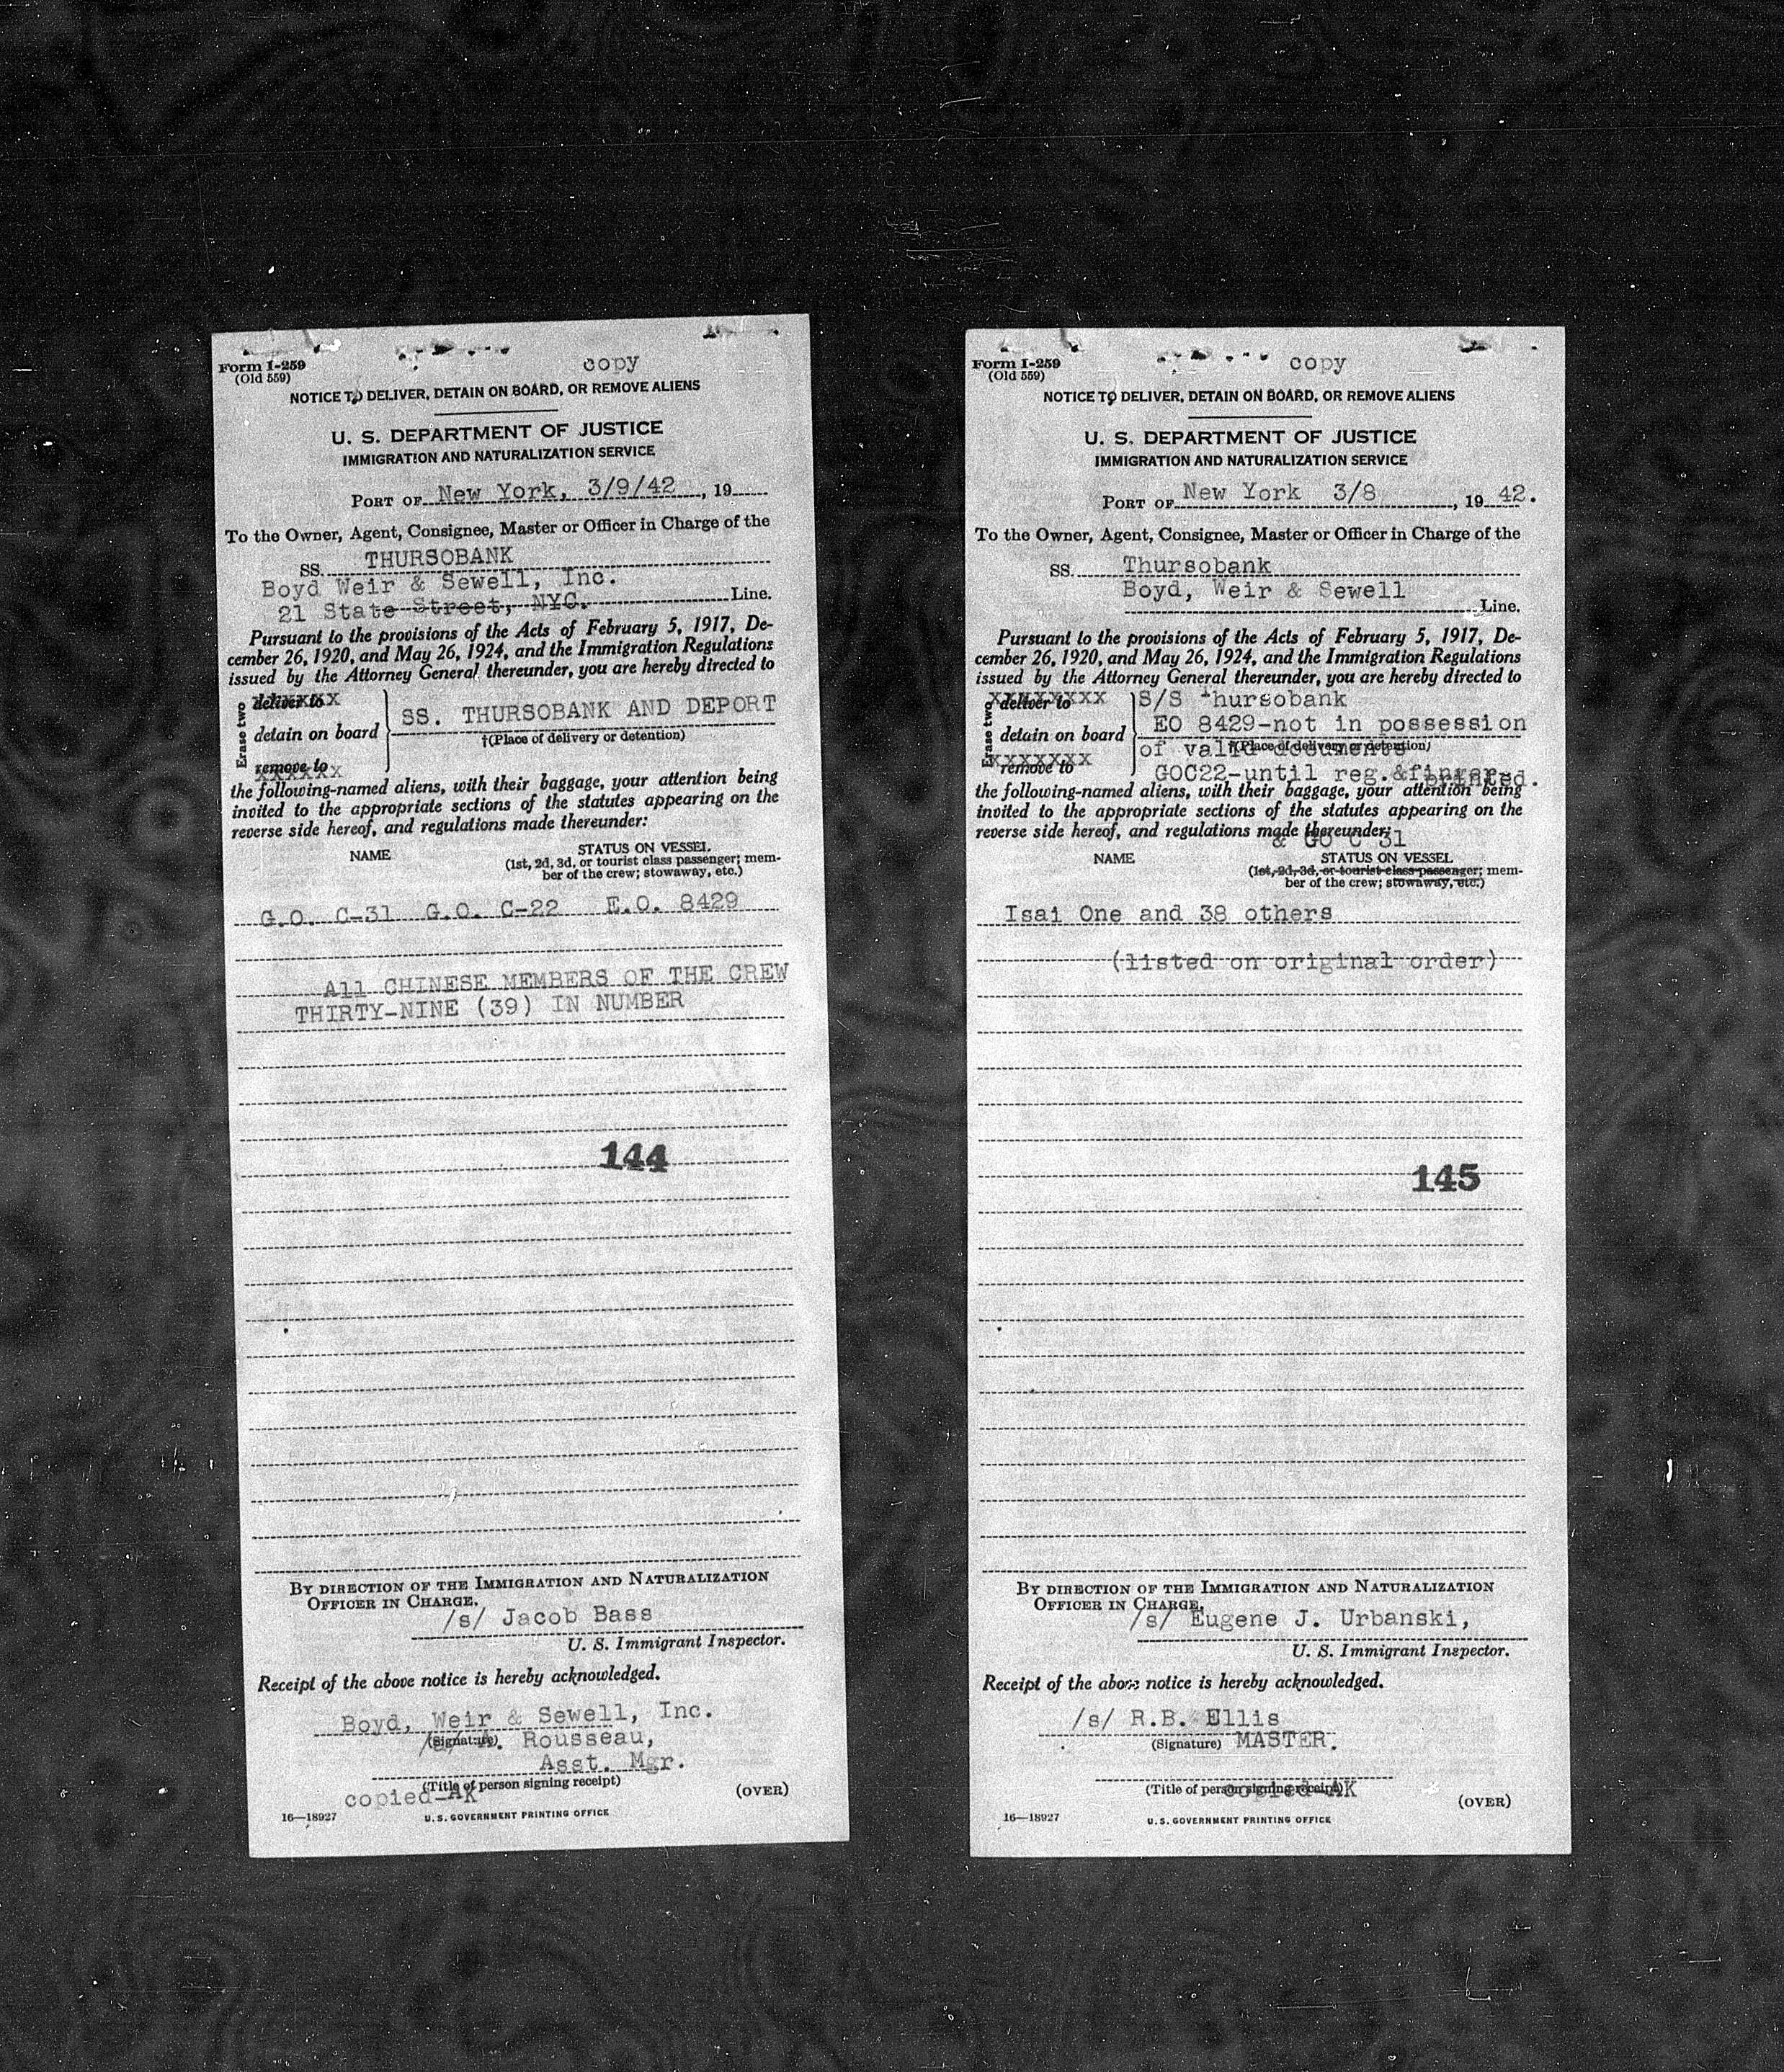 Form I-259
(Old 559)
copy
NOTICE TO DELIVER, DETAIN ON BOARD, OR REMOVE ALIENS
U. S. DEPARTMENT OF JUSTICE
IMMIGRATION AND NATURALIZATION SERVICE
PORT OF New York, 3/9/42, 19
To the Owner, Agent, Consignee, Master or Officer in Charge of the
SS. THURSOBANK
Boyd Weir & Sewell, Inc.
21 State Street, NYC. Line.
Pursuant to the provisions of the Acts of February 5, 1917, De-
cember 26, 1920, and May 26, 1924, and the Immigration Regulations
issued by the Attorney General thereunder, you are hereby directed to
Erase two
deliver to
detain on board
remove to
SS. THURSOBANK AND DEPORT
†(Place of delivery or detention)
the following-named aliens, with their baggage, your attention being
invited to the appropriate sections of the statutes appearing on the
reverse side hereof, and regulations made thereunder:
NAME
STATUS ON VESSEL
(1st, 2d, 3d, or tourist class passenger; mem-
ber of the crew; stowaway, etc.)
G.O. C-31 G.O. C-22 E.O. 8429
All CHINESE MEMBERS OF THE CREW
THIRTY-NINE (39) IN NUMBER
144
BY DIRECTION OF THE IMMIGRATION AND NATURALIZATION
OFFICER IN CHARGE.
/s/ Jacob Bass
U. S. Immigrant Inspector.
Receipt of the above notice is hereby acknowledged.
Boyd, Weir & Sewell, Inc.
(Signature)
Rousseau,
Asst. Mgr.
(Title of person signing receipt)
copied-AK
(OVER)
16—18927
U. S. GOVERNMENT PRINTING OFFICE
Form I-259
(Old 559)
copy
NOTICE TO DELIVER, DETAIN ON BOARD, OR REMOVE ALIENS
U. S. DEPARTMENT OF JUSTICE
IMMIGRATION AND NATURALIZATION SERVICE
PORT OF New York 3/8, 19 42.
To the Owner, Agent, Consignee, Master or Officer in Charge of the
SS. Thursobank
Boyd, Weir & Sewell
Line.
Pursuant to the provisions of the Acts of February 5, 1917, De-
cember 26, 1920, and May 26, 1924, and the Immigration Regulations
issued by the Attorney General thereunder, you are hereby directed to
Erase two
deliver to
detain on board
remove to
S/S Thursobank
EO 8429-not in possession
of valid documents
†(Place of delivery or detention)
GOC22-until reg.&finger-
printed.
the following-named aliens, with their baggage, your attention being
invited to the appropriate sections of the statutes appearing on the
reverse side hereof, and regulations made thereunder:
& GO C 31
NAME
STATUS ON VESSEL
(1st, 2d, 3d, or tourist class passenger; mem-
ber of the crew; stowaway, etc.)
Isai One and 38 others
(listed on original order)
145
BY DIRECTION OF THE IMMIGRATION AND NATURALIZATION
OFFICER IN CHARGE.
/s/ Eugene J. Urbanski,
U. S. Immigrant Inspector.
Receipt of the above notice is hereby acknowledged.
/s/ R.B. Ellis
(Signature) MASTER.
(Title of person signing receipt)
copied AK
(OVER)
16—18927
U. S. GOVERNMENT PRINTING OFFICE